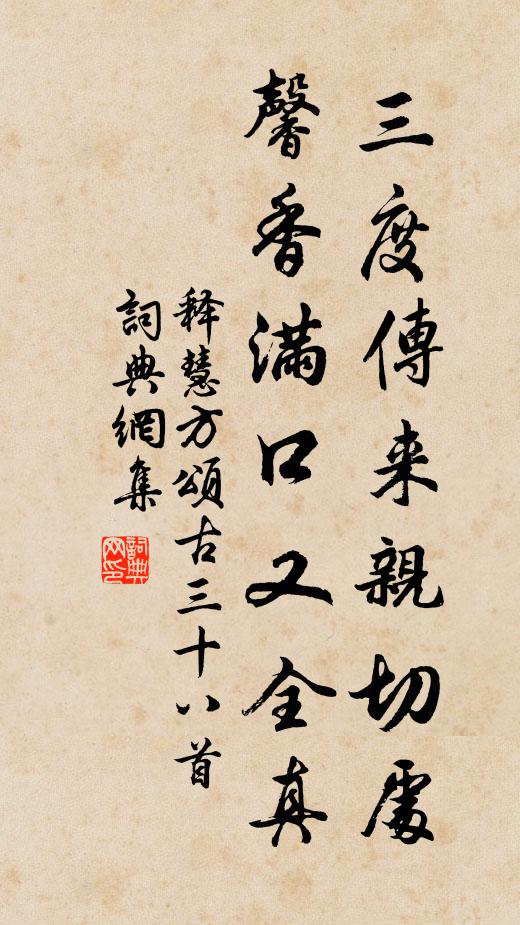 三度傳来親切處
馨香满口又全真
释慧方頌古三十八首
詞典網集
詞典网印